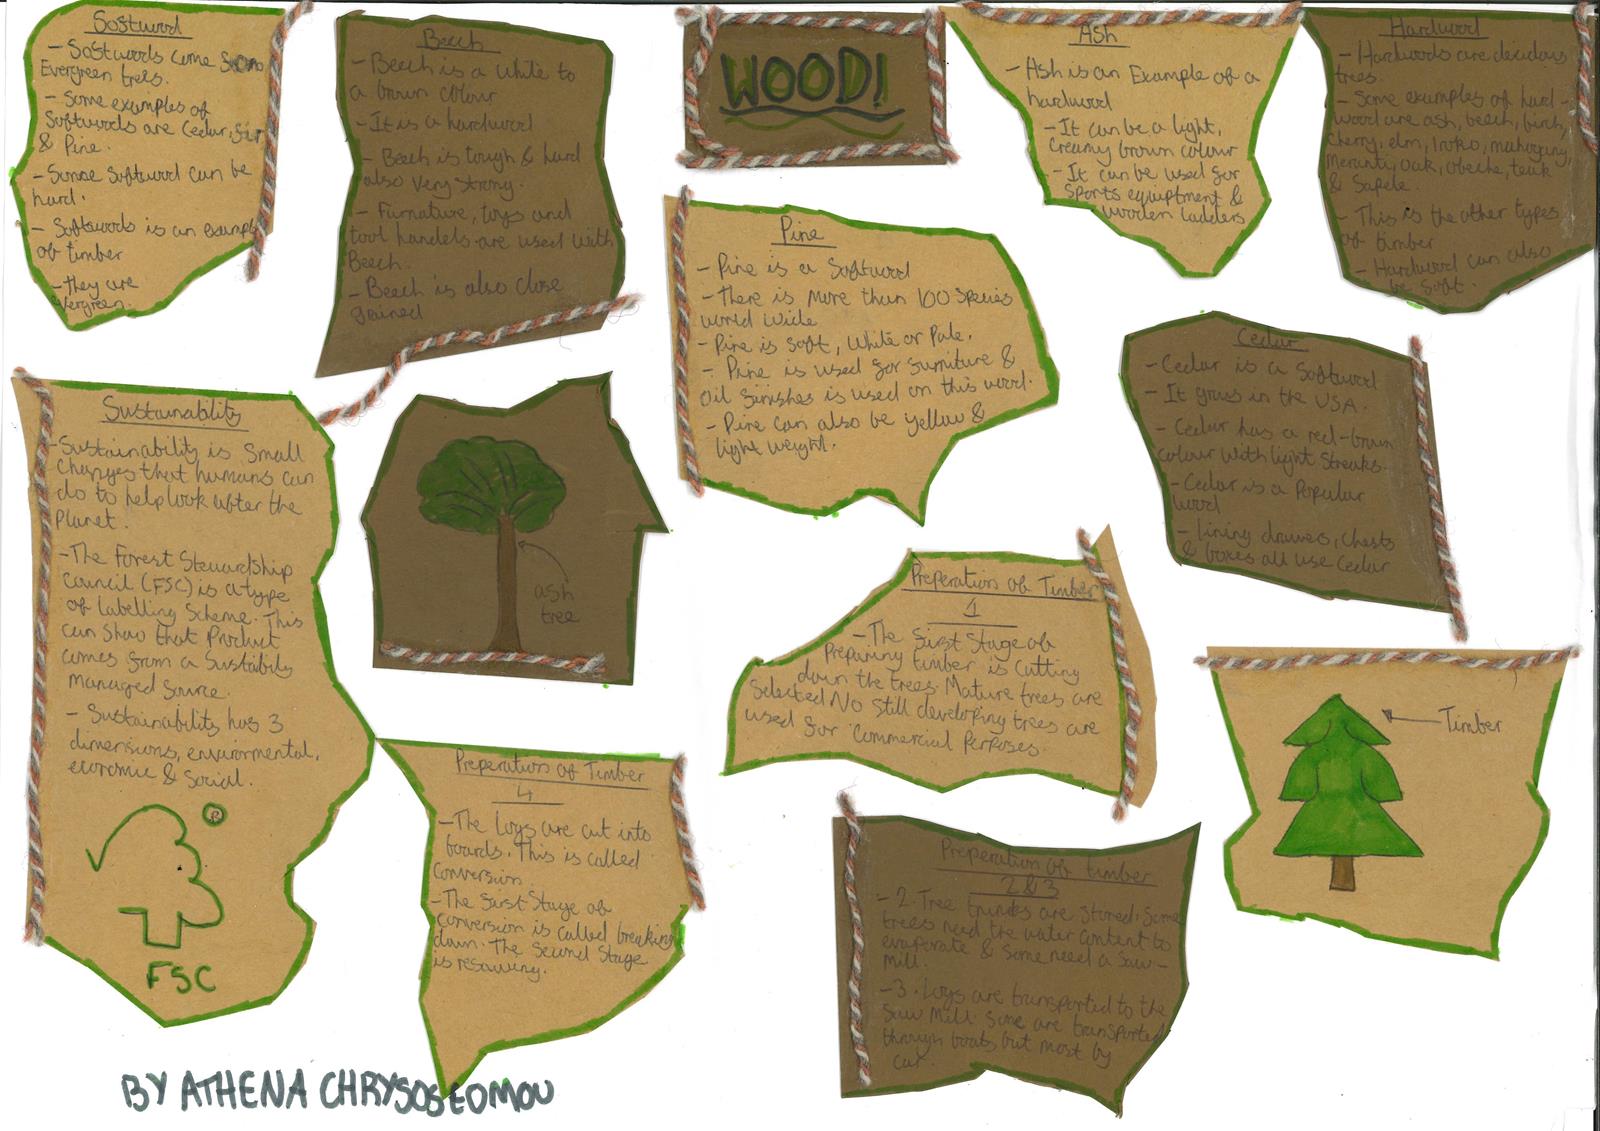 Softwood
- Softwoods come from
Evergreen trees.
- Some examples of
Softwoods are Cedar, fir
& Pine.
- Some Softwood can be
hard.
- Softwoods is an example
of timber
- they are
evergreen.
Beech
- Beech is a white to
a brown colour
- It is a hardwood
- Beech is tough & hard
also very strong.
- Furnature, toys and
tool handels are used with
Beech.
- Beech is also close
grained
WOOD!
Ash
- Ash is an Example of a
hardwood
- It can be a light,
creamy brown colour
- It can be used for
sports equiptment &
wooden ladders
Hardwood
- Hardwoods are decidous
trees.
- Some examples of hard-
wood are ash, beech, birch,
cherry, elm, Iroko, mahogany,
meranti, oak, obeche, teak
& Sapele.
- This is the other types
of timber
- Hardwood can also
be soft.
Pine
- Pine is a Softwood
- There is more than 100 species
world wide
- Pine is soft, white or Pale.
- Pine is used for furniture &
oil finishes is used on this wood.
- Pine can also be yellow &
light weight.
Cedar
- Cedar is a Softwood
- It grows in the USA.
- Cedar has a red-brown
colour with light streaks.
- Cedar is a Popular
wood
- lining drawers, chests
& boxes all use cedar
Sustainability
- Sustainability is small
changes that humans can
do to help look after the
Planet.
- The Forest Stewardship
council (FSC) is a type
of labelling scheme. This
can show that Product
comes from a Sustaibly
managed source.
- Sustainability has 3
dimensions, enviormental,
economic & Social.
®
FSC
ash
tree
Preperation of Timber
1
- The first stage of
Preparing timber is cutting
down the trees. Mature trees are
selected No still developing trees are
used for commercial Perposes.
Timber
Preperation of Timber
4
- The logs are cut into
boards. This is called
conversion.
- The first stage of
conversion is called breaking
down. The second stage
is resawing.
Preperation of timber
2&3
- 2. Tree trunks are stored. Some
trees need the water content to
evaporate & some need a saw-
mill.
- 3. Logs are transported to the
Saw Mill. Some are transported
through boats but most by
car.
BY ATHENA CHRYSOSTOMOU